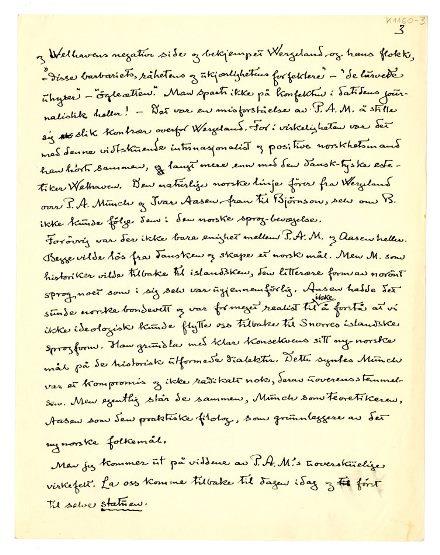 K1160-3
3
og Welhavens negative side og bekjempet Wergeland, og hans flokk,
"disse barbariets, råhetens og ukjærlighetens forfektere" - "de lærvede
uhyrer" - "øgleætten". Man sparte ikke på konfekten i datidens jour-
nalistik heller! - Det var en misforståelse av P.A.M. å stille
sig slik kontrær overfor Wergeland. For i virkeligheten var det
med denne vidtskuende internasjonalist og positive norskhetsmand
han hørte sammen, og langt mere enn med den dansk-tyske este-
tiker Welhaven. Den naturlige norske linje fører fra Wergeland
over P.A. Munch og Ivar Aasen fram til Bjørnson, selv om B.
ikke kunde følge dem i den norske sprog-bevegelse.
Forøvrig var der ikke bare enighet mellem P.A.M. og Aasen heller.
Begge vilde løs fra dansken og skape et norsk mål. Men M. som
historiker vilde tilbake til islandsken, den litterære form av norrønt
sprog, noet som i sig selv var ugjennemførlig. Aasen hadde det
sunde norske bondevett og var for meget realist til ikke å forstå at vi
ikke ideologisk kunde flytte oss tilbake til Snorres islandske
sprogform. Han grundla med klar konsekvens sitt ny-norske
mål på de historisk utformede dialekter. Dette syntes Munch
var et kompromis og ikke radikalt nok, derav uoverensstemmel-
sen. Men egentlig står de sammen, Munch som teoretikeren,
Aasen som den praktiske filolog, som grunnleggere av det
nynorske folkemål.
Men jeg kommer ut på viddene av P.A.M.'s uoverskuelige
virkefelt. La oss komme tilbake til dagen idag og først
til selve statuen.